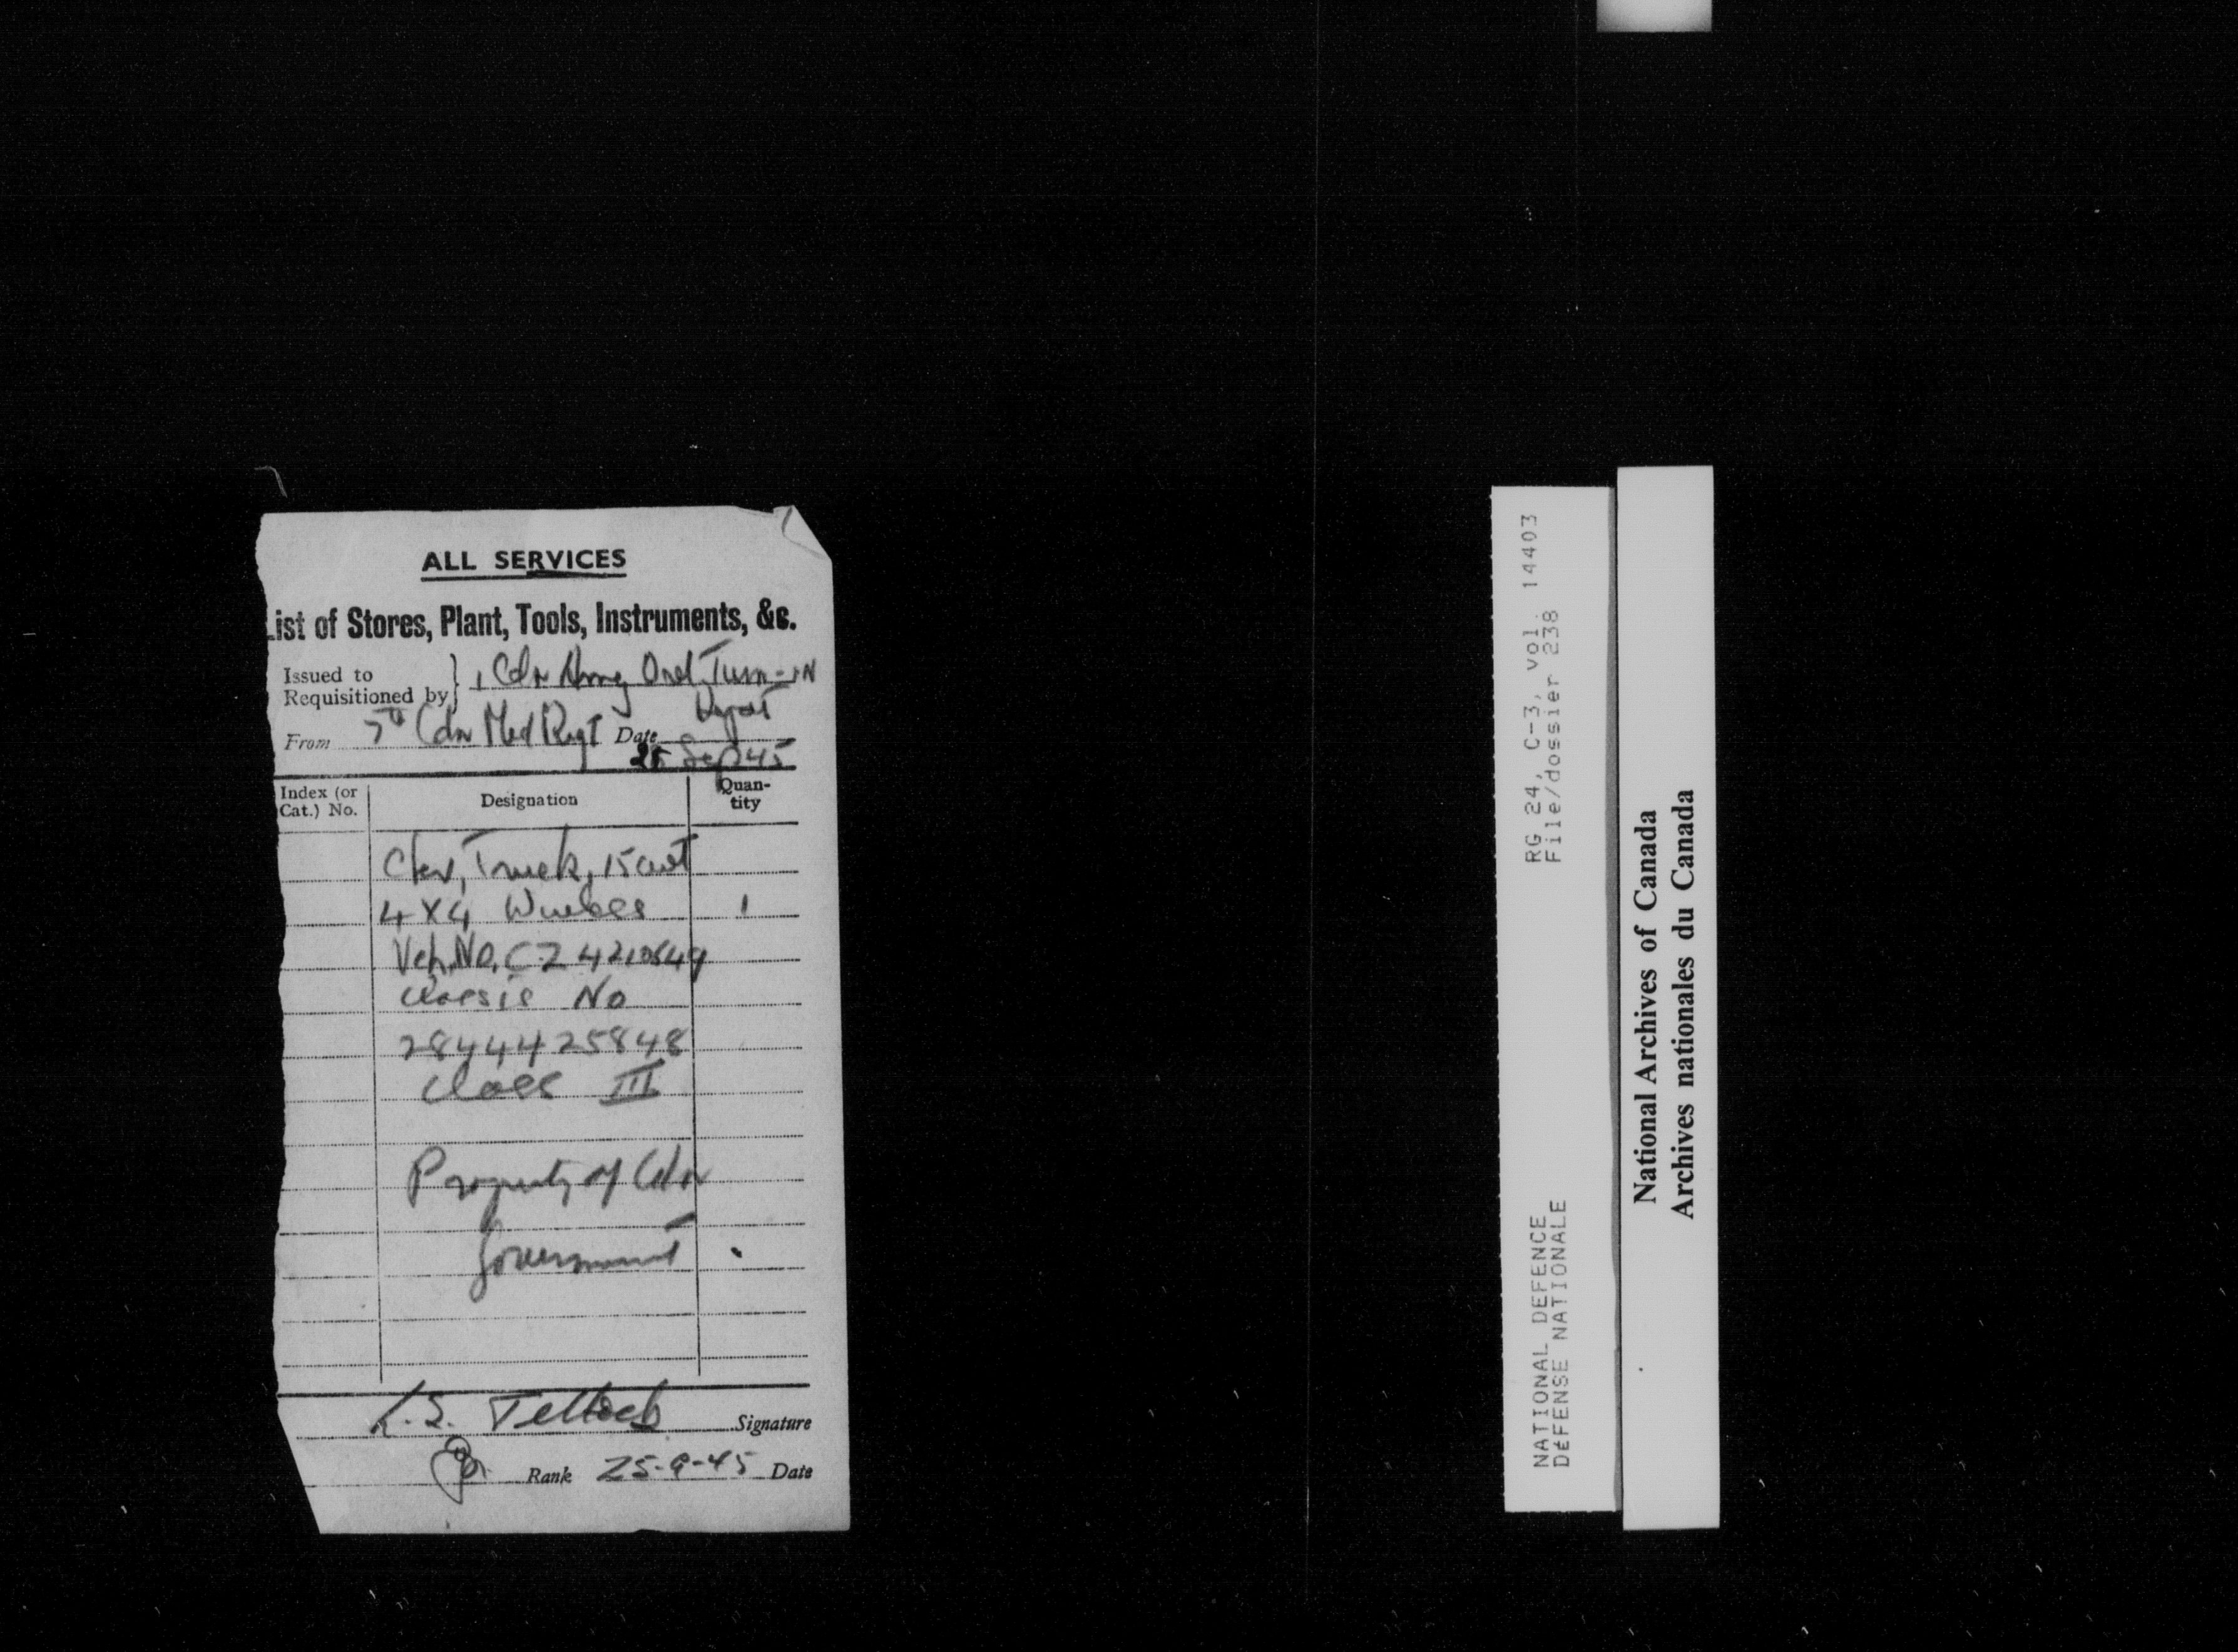 ALL SERVICES
List of Stores, Plant, Tools, Instruments, &c.
Issued to
Requisitioned by } 1 Cdn Army Ord Turn-IN
Depot
From 7th Cdn Med Regt Date
25 Sep 45
Index (or Cat.) No. Designation Quan-tity
Chev, Truck, 15 cwt
4X4 Wireless 1
Veh. No. CZ 4210649
Chassis No
2844425848
Class III
Property of Cdn
Government
L.S. Signature
Rank 25-9-45 Date
RG 24, C-3, vol. 14403
File/dossier 238
NATIONAL DEFENCE
DÉFENSE NATIONALE
National Archives of Canada
Archives nationales du Canada